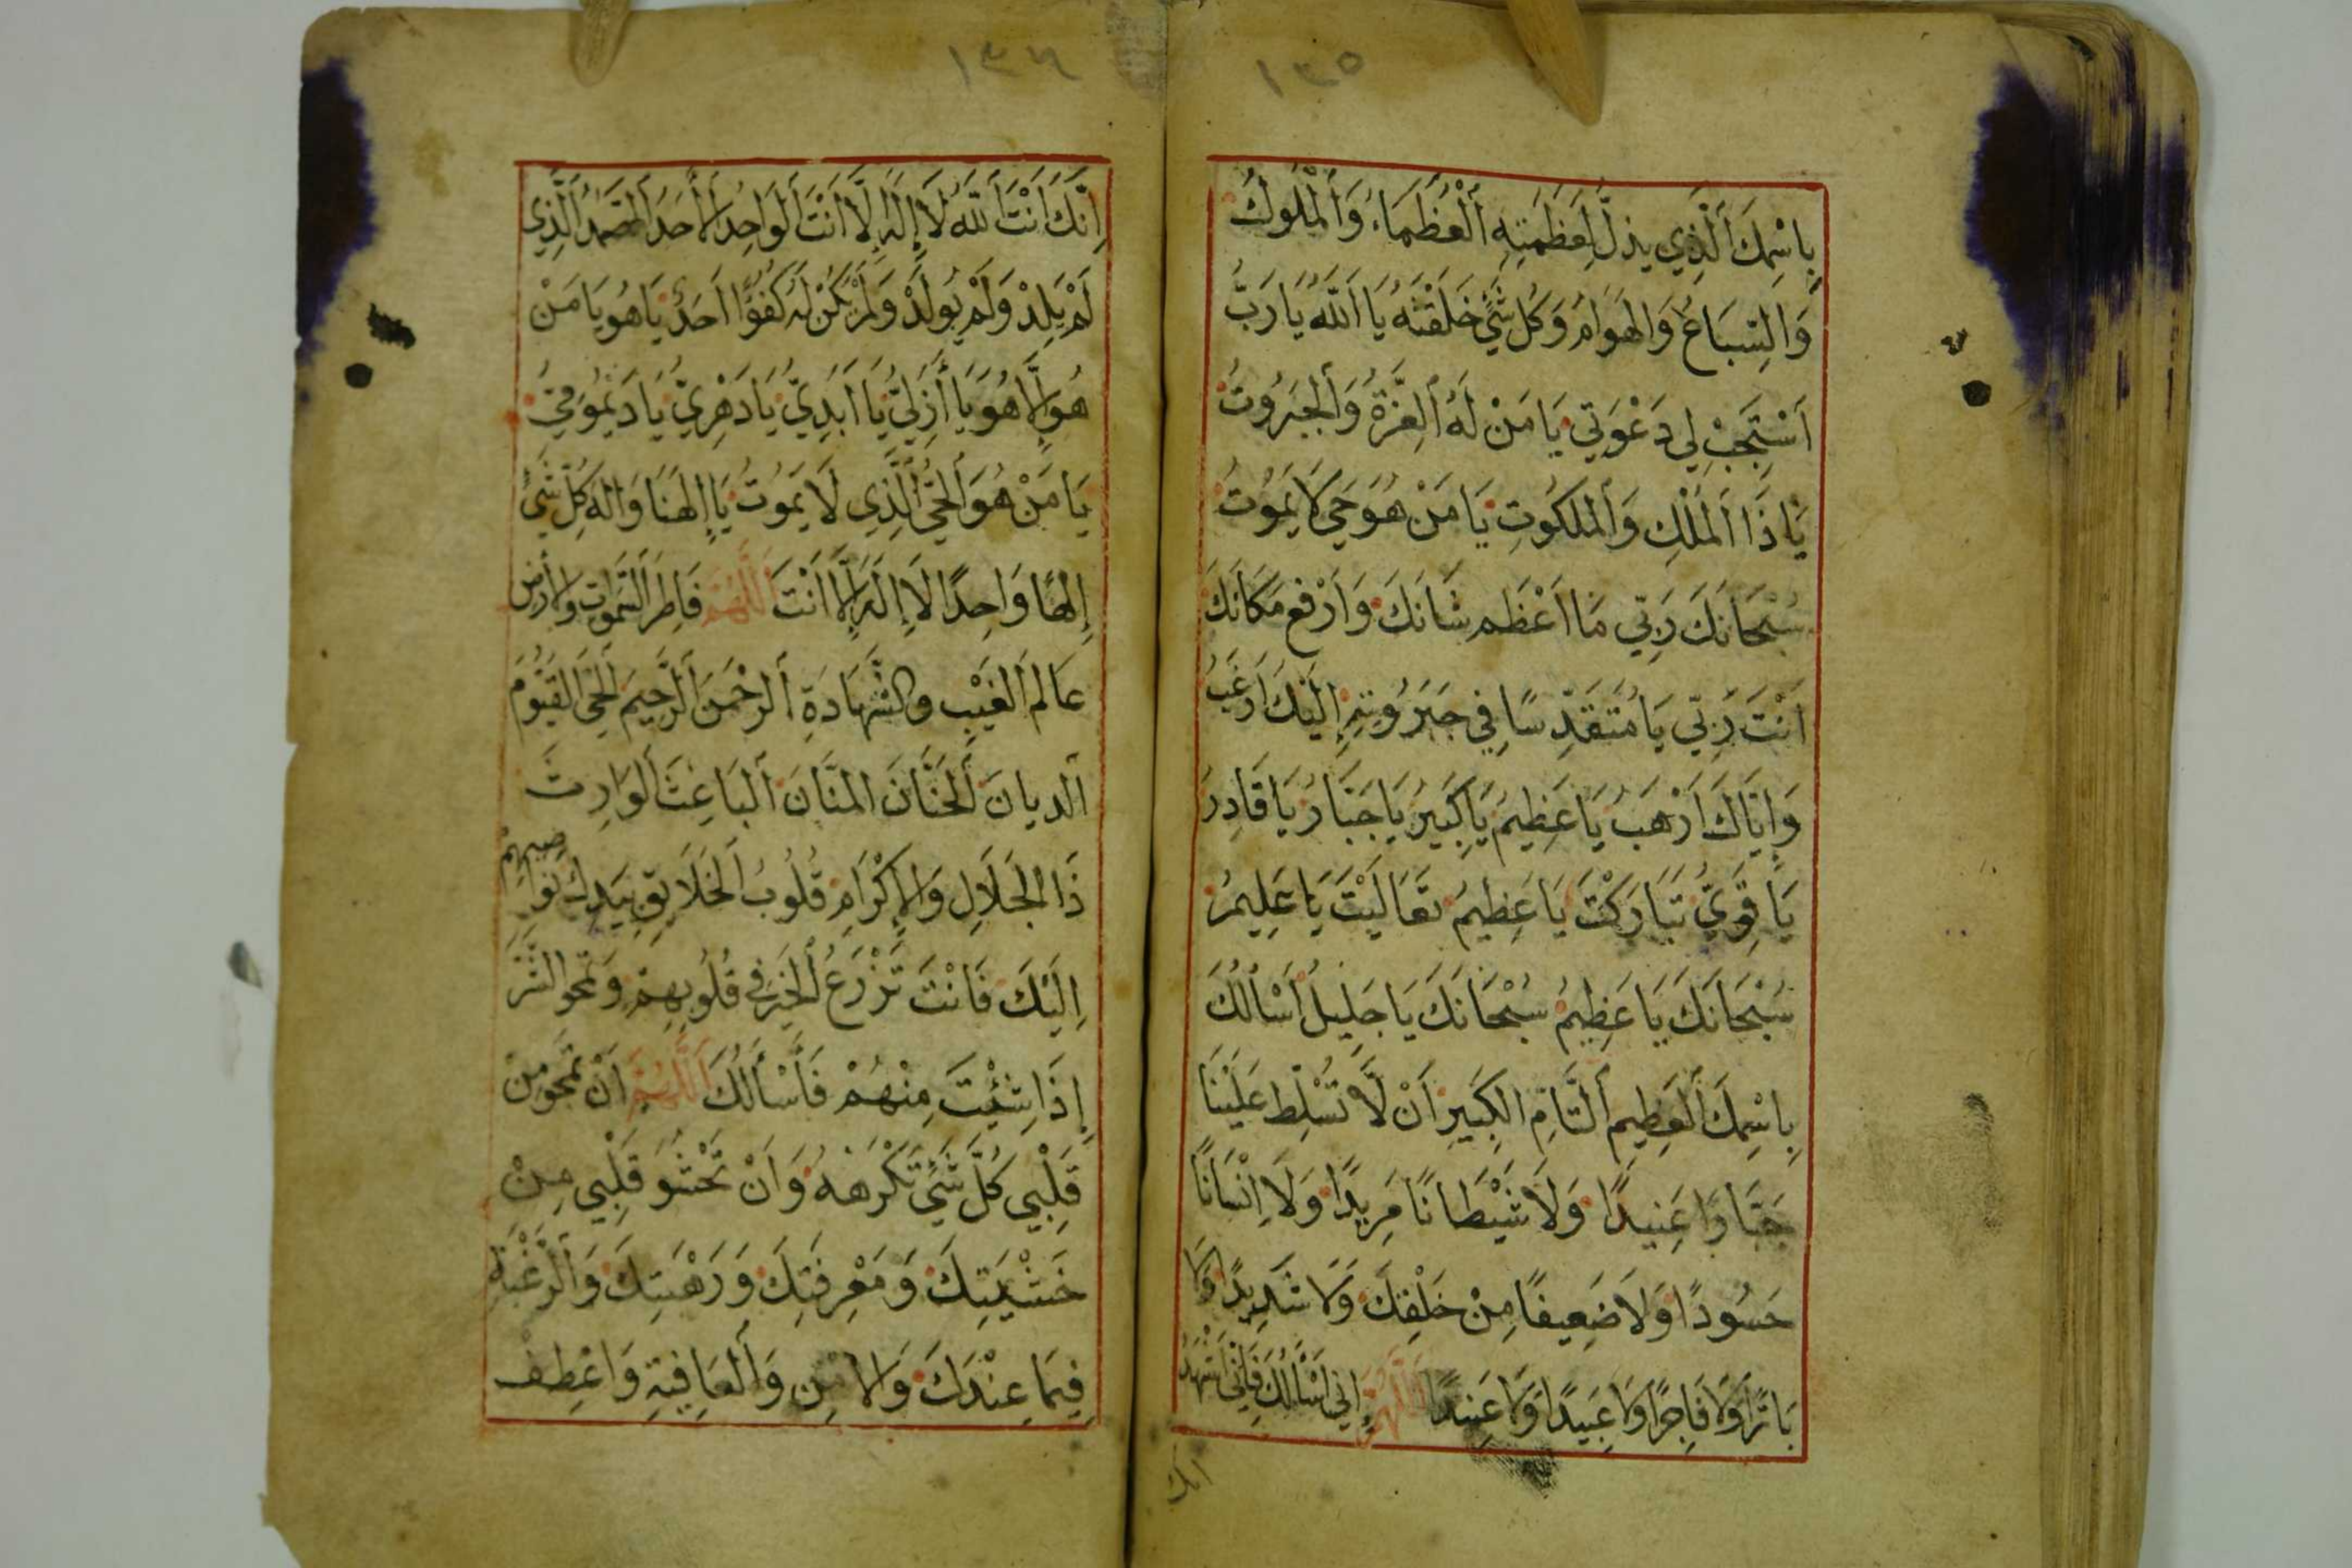 ١٣٥
بِاسْمِكَ الَّذِي يذلّ لِعَظَمَتِهِ الْعُظَمَاءُ وَالْمُلُوكُ
وَالسِّبَاعُ وَالهَوَامُ وَكُل شَيْءٍ خَلَقْتَهُ يَا اَللّٰهُ يَا رَبِّ
اَسْتَجِبْ لِي دَعْوَتِي يَا مَنْ لَهُ الْعِزَّةُ وَالجَبَرُوتُ
يَا ذَا الْمُلْكِ وَالْمَلَكُوتِ يَا مَنْ هُوَ حَيٌّ لَا يَمُوتُ
سُبْحَانَكَ رَبِّي مَا اَعْظَم شَانَكَ وَاَرْفع مَكَانَكَ
اَنْتَ رَبِّي يَا مُتَقَدِّسًا فِي جَبَرُوتِهِ اِلَيْكَ اَرْغَبُ
وَاِيَّاكَ اَرْهَبُ يَا عَظِيمُ يَا كَبِيرُ يَا جَبَّارُ يَا قَادِرُ
يَا قَوِيُّ تَبَارَكْتَ يَا عَظِيمُ تَعَالَيْتَ يَا عَلِيمُ
سُبْحَانَكَ يَا عَظِيمُ سُبْحَانَكَ يَا جَلِيلُ اَسْاَلُكَ
بِاسْمِكَ الْعَظِيمِ التَّامِّ الكَبِيرِ اَنْ لَا تُسَلِّط عَلَيْنَا
جَبَّارًا عَنِيدًا وَلَا شَيْطَانًا مَرِيدًا وَلَا اِنْسَانًا
حَسُودًا وَلَا ضَعِيفًا مِنْ خَلْقِكَ وَلَا شَدِيدًا وَلَا
بَارًّا وَلَا فَاجِرًا وَلَا عَبِيدًا وَلَا عَنِيدًا اَللّٰهُمَّ اِنِّي اَسْاَلُكَ فَاِنِّي اَشْهَدُ
انك
١٣٦
اِنَّكَ اَنْتَ اللّٰهُ لَا اِلٰهَ اِلَّا اَنْتَ الْوَاحِدُ الْاَحَدُ الصَّمَدُ الَّذِي
لَمْ يَلِدْ وَلَمْ يُولَدْ وَلَمْ يَكُنْ لَهُ كُفُوًا اَحَدٌ يَا هُو يَا مَنْ
هُو اِلَّا هُوَ يَا اَزَلِيُّ يَا اَبَدِيُّ يَا دَهْرِيُّ يَا دَيْمُومِيُّ
يَا مَنْ هُوَ الْحَيُّ الَّذِي لَا يَمُوتُ يَا اِلٰهَنَا وَاِلٰهَ كُلِّ شَيْءٍ
اِلٰهًا وَاحِدًا لَا اِلٰهَ اِلَّا اَنْتَ اَللّٰهُمَّ فَاطِرَ السَّمٰوَاتِ وَالْاَرْضِ
عَالِمَ الْغَيْبِ وَالشَّهَادَةِ الرَّحْمٰنَ الرَّحِيمَ الْحَيَّ الْقَيُّومَ
الديانَ الْحَنَّانَ المَنَّانَ الْبَاعِثَ الْوَارِثَ
ذَا الْجَلَالِ وَالْاِكْرَامِ قُلُوبُ الْخَلَائِقِ بِيَدِكَ نَوَاصِيهِمْ
اِلَيْكَ فَاَنْتَ تَزْرَعُ الْخَيْرَ فِي قُلُوبِهِمْ وَتَمْحُو الشَّرَّ
اِذَا شِئْتَ مِنْهُمْ فَاَسْاَلُكَ اَللّٰهُمَّ اَنْ تَمْحُو مِنْ
قَلْبِي كُلَّ شَيْءٍ تَكْرَهُهُ وَاَنْ تَحْشُوَ قَلْبِي مِنْ
خَشْيَتِكَ وَمَعْرِفَتِكَ وَرَهْبَتِكَ وَالرَّغْبَةِ
فِيمَا عِنْدَكَ وَالاَمْنِ وَالْعَافِيَةِ وَاعْطِفْ